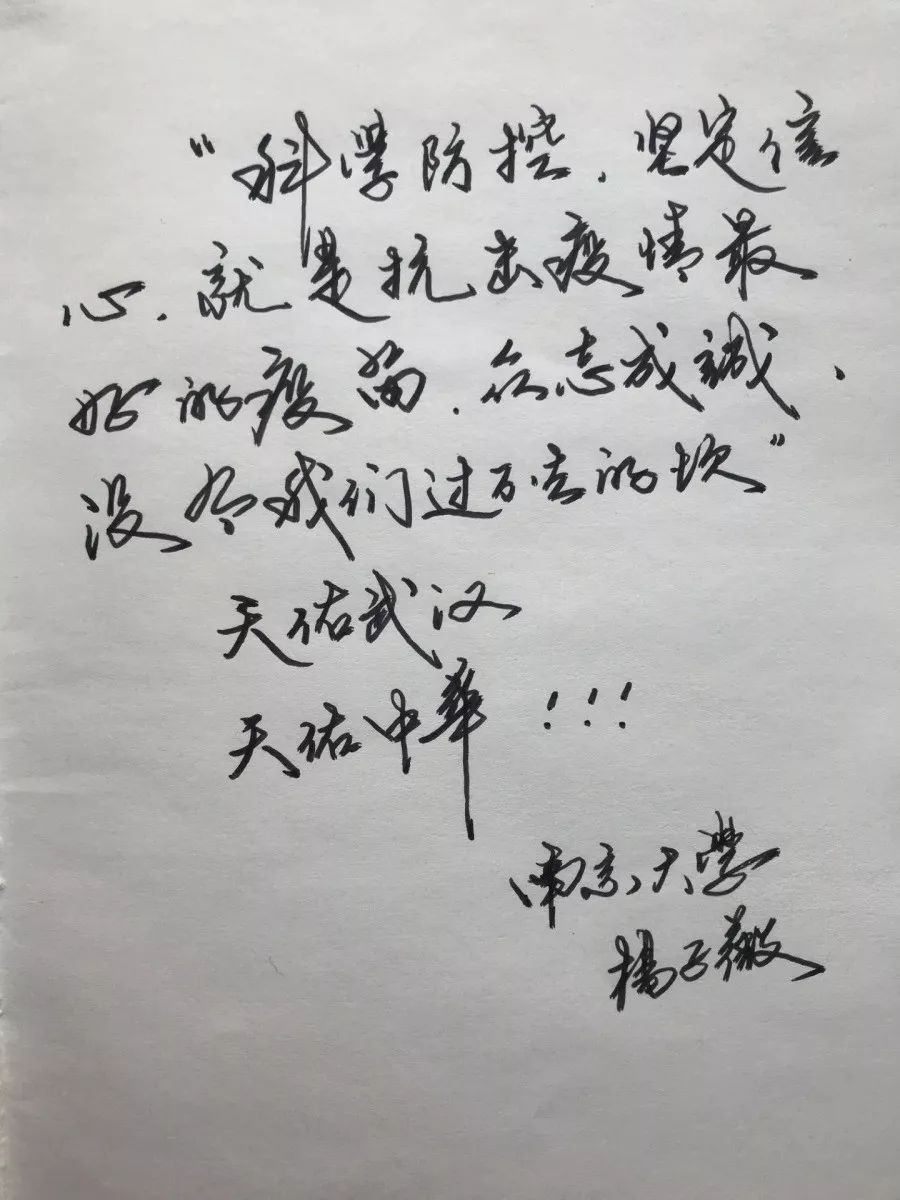 “科学防控，坚定信
心，就是抗击疫情最
好的疫苗，众志成诚，
没令我们过不去的坎”
天佑武汉
天佑中华！！！
南京大学
杨子薇